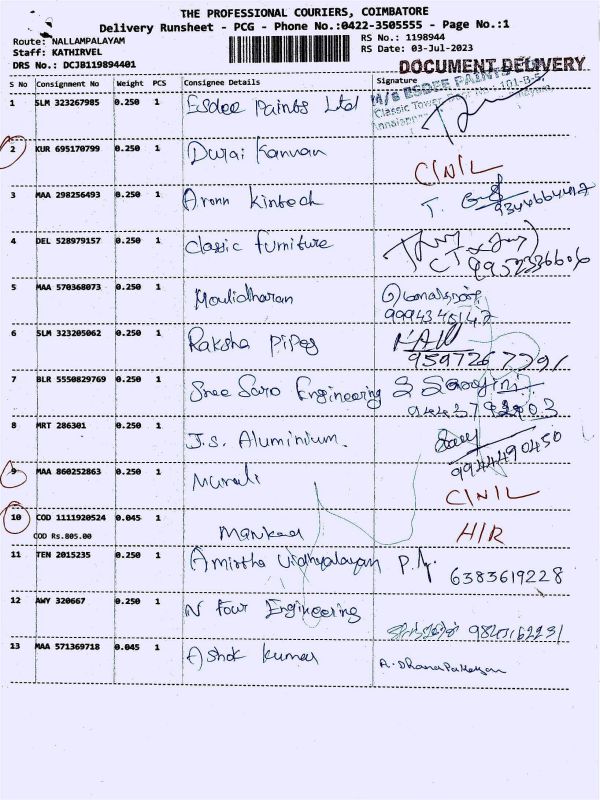 THE PROFESSIONAL COURIERS, COIMBATORE
Delivery Runsheet - PCG - Phone No.:0422-3505555 - Page No.:1
Route: NALLAMPALAYAM
RS No.: 1198944
Staff: KATHIRVEL
RS Date: 03-Jul-2023
DRS No.: DCJB119894401
DOCUMENT DELIVERY
S No Consignment No Weight PCS Consignee Details Signature
M/s ESDEE PAINTS
Classic Tower
1 SLM 323267985 0.250 1 Esdee Paints Ltd
2 KUR 695170799 0.250 1 Durai Kannan CINIL
3 MAA 298256493 0.250 1 Aronn Kintech T.
4 DEL 528979157 0.250 1 Classic furniture
9952336606
5 MAA 570368073 0.250 1 Moulidharan
6 SLM 323205062 0.250 1 Raksha Pipes
9597267291
7 BLR 5550829769 0.250 1 Sree Saro Engineering
8 MRT 286301 0.250 1 J.S. Aluminium.
9944490450
9 MAA 860252863 0.250 1 Murali CINIL
10 COD 1111920524 0.045 1 H/R
COD Rs.805.00
11 TEN 2015235 0.250 1 Amirtha Vidhyalayam 6383619228
12 AWY 320667 0.250 1 N Four Engineering
13 MAA 571369718 0.045 1 Ashok Kumar